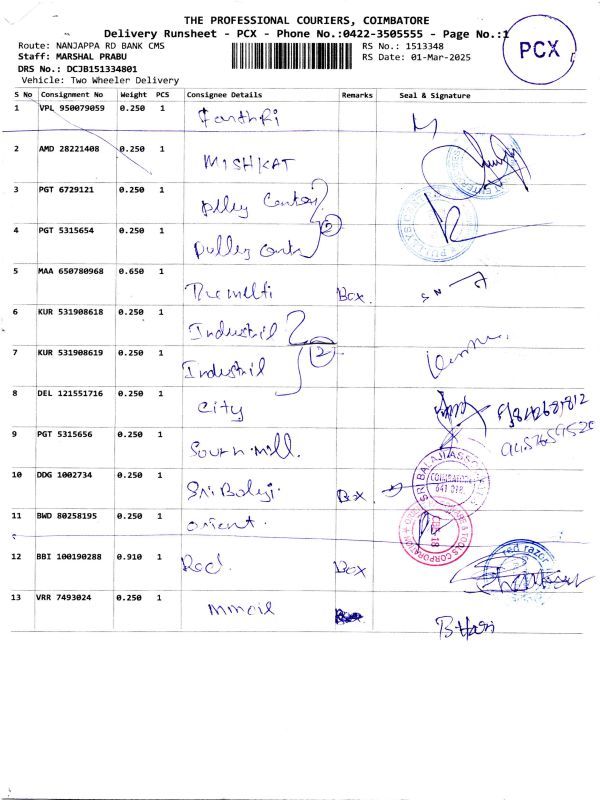 THE PROFESSIONAL COURIERS, COIMBATORE
Delivery Runsheet - PCX - Phone No.:0422-3505555 - Page No.:1
PCX
Route: NANJAPPA RD BANK CMS
RS No.: 1513348
Staff: MARSHAL PRABU
RS Date: 01-Mar-2025
DRS No.: DCJB151334801
Vehicle: Two Wheeler Delivery
S No Consignment No Weight PCS Consignee Details Remarks Seal & Signature
1 VPL 950079059 0.250 1
2 AMD 28221408 0.250 1 MISHKAT
3 PGT 6729121 0.250 1
4 PGT 5315654 0.250 1
2
5 MAA 650780968 0.650 1 Box.
6 KUR 531908618 0.250 1 Industril
7 KUR 531908619 0.250 1 Industril 2
8 DEL 121551716 0.250 1 City
9 PGT 5315656 0.250 1 South mill.
10 DDG 1002734 0.250 1 Sri Balaji. Box
SRI BALAJI
COIMBATORE
641 018
11 BWD 80258195 0.250 1 orient.
TOOLS CORPORATION
12 BBI 100190288 0.910 1 Red. Box
red razor
13 VRR 7493024 0.250 1
B. Hari